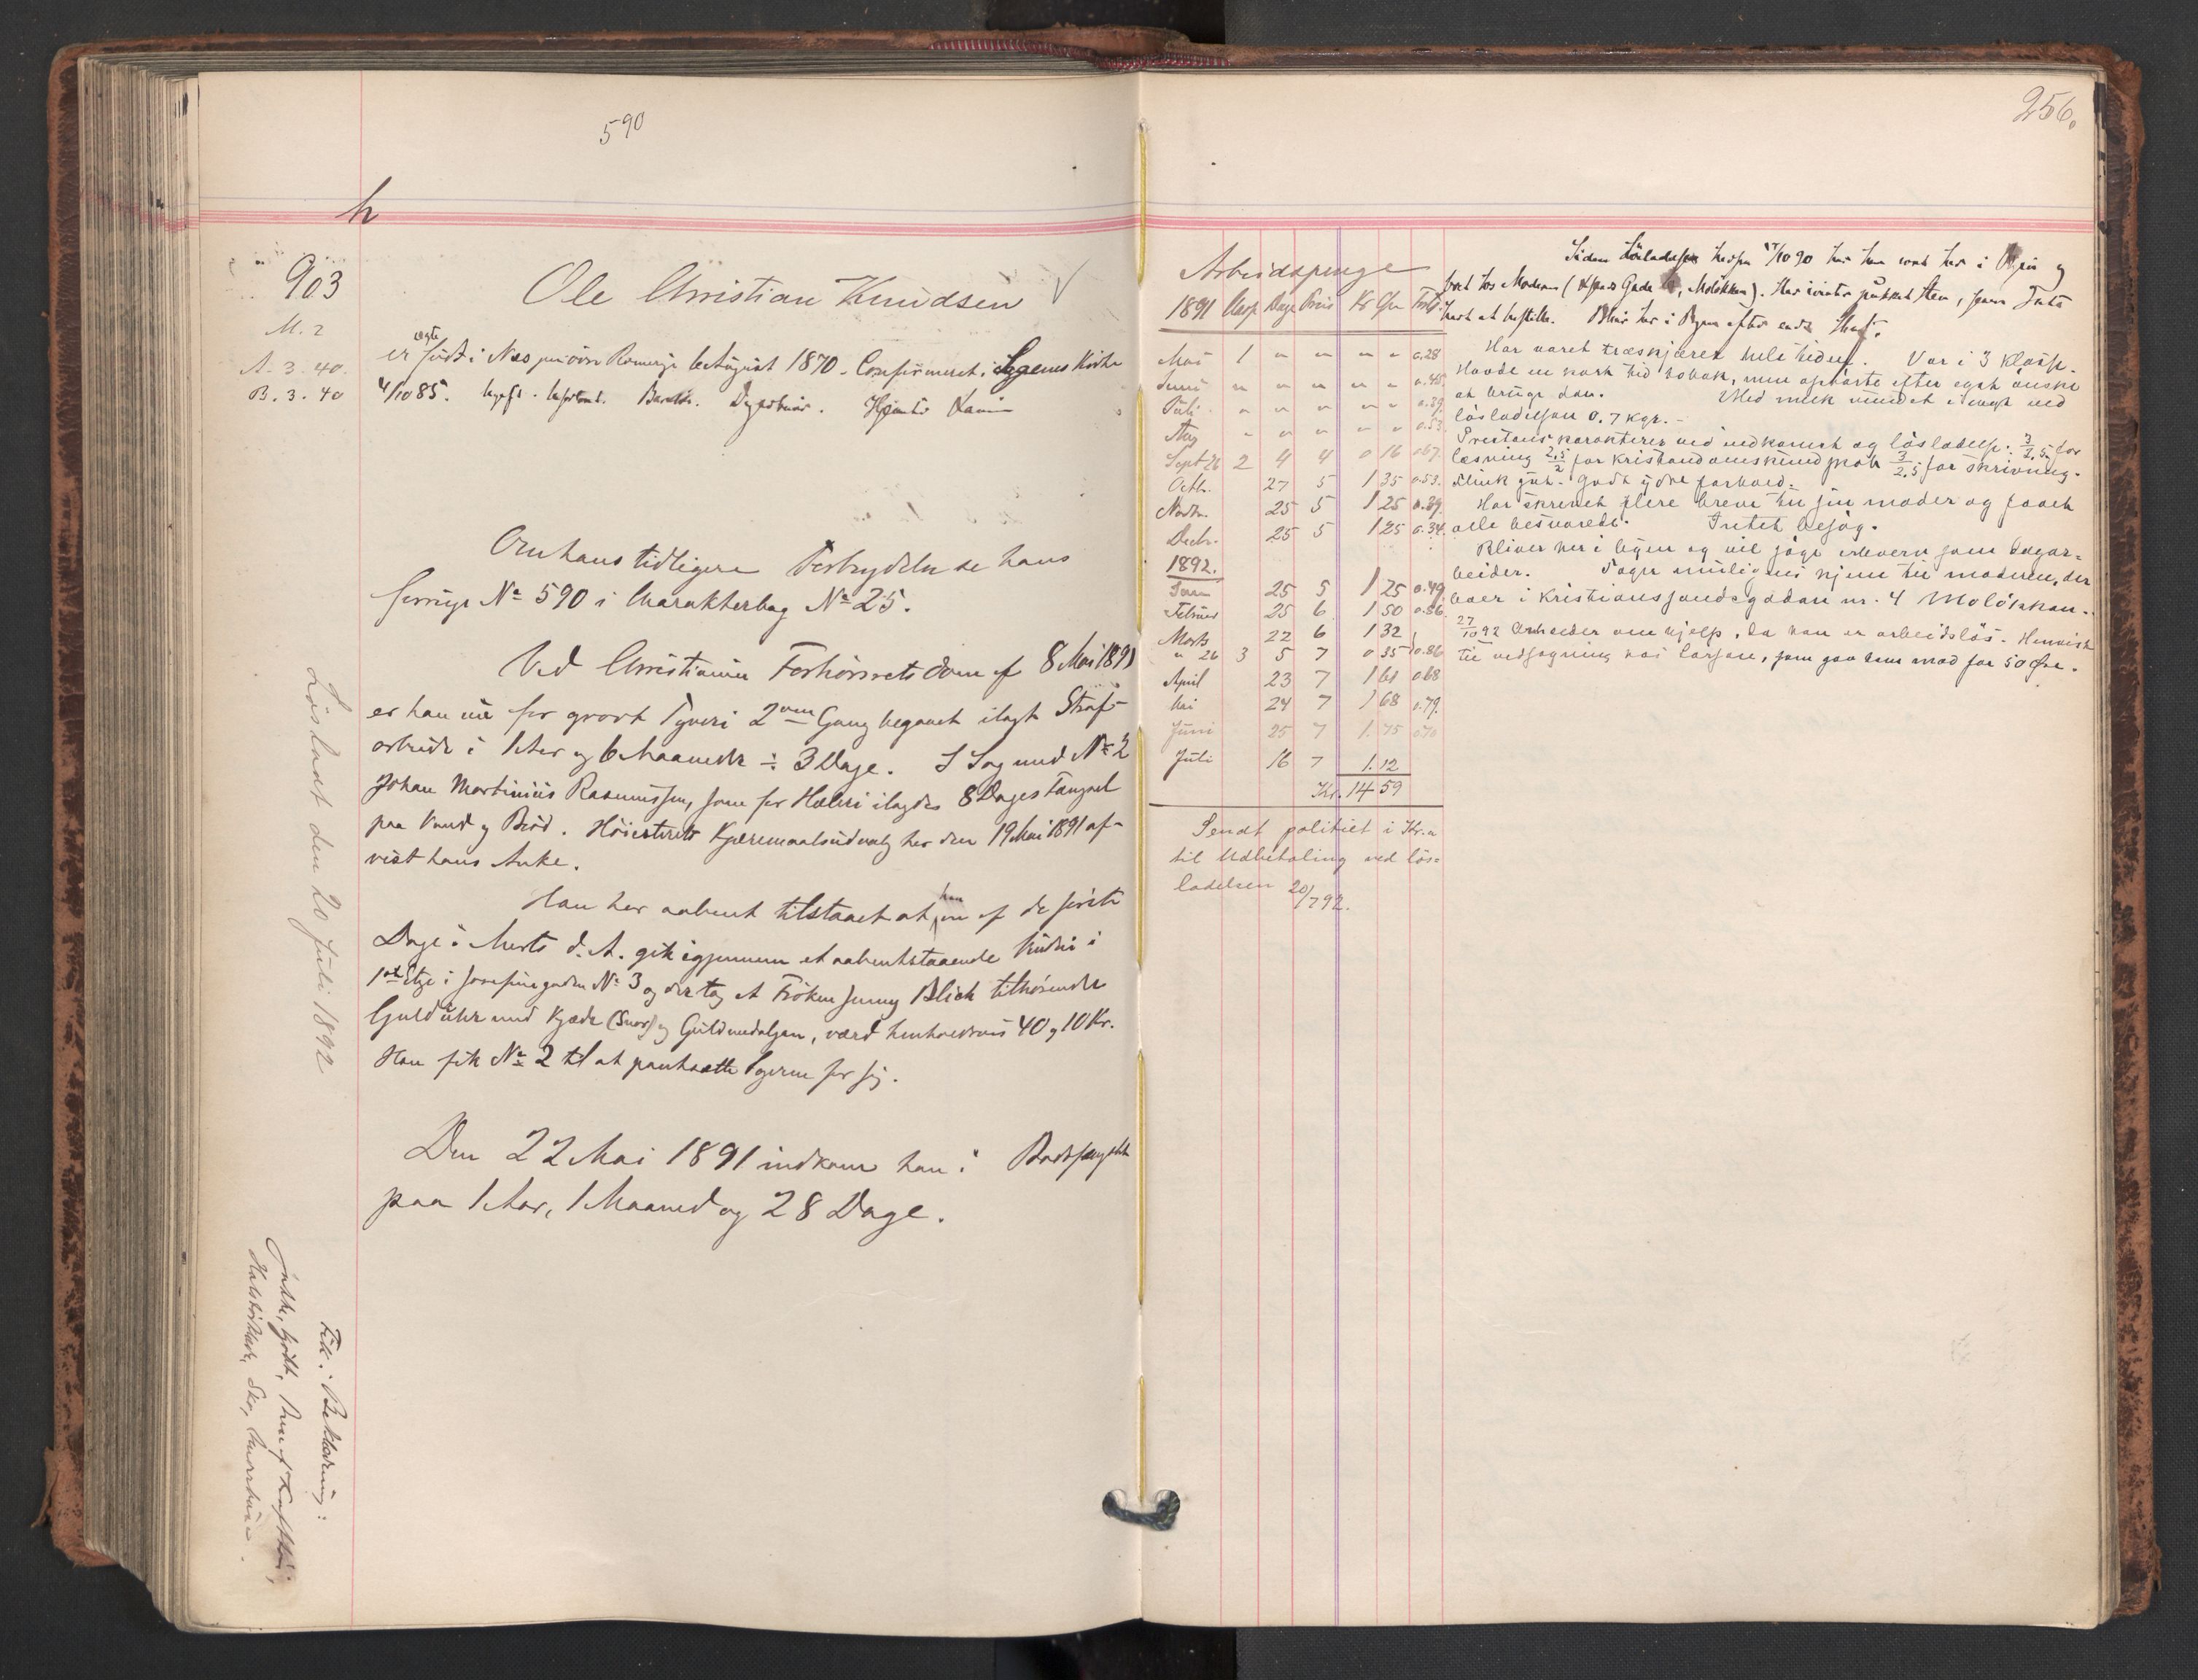 590
h
903
M. 2
A. 3. 40.
B. 3. 40
Ole Christian Knudsen
er ægte født i Næs paa øvre Romerige 6 August 1870. Confirmeret i Kirke
4/10 85. ugift. Barnløs.
Om hans tidligere Forbrydelser se hans
forrige No 590 i Charakterbog No 25.
Ved Christiania Forhørsrets dom af 8 Mai 1891
er han nu for grovt Tyveri 2den Gang begaaet ilagt Straf-
arbeide i 1 Aar og 6 Maaneder ÷ 3 Dage. I Sag med No 2
Johan Martinius Rasmussen, som for Hæleri ilagdes 8 Dages Fængsel
paa Vand og Brød. Høiesterets Kjæremaalsudvalg har den 19 Mai 1891 af-
vist hans Anke.
Han har aabent tilstaaet at han en af de første
Dage i Marts d. A. gik igjennem et aabentstaaende Vindu i
1ste Etge i Josefinegaden No 3 og der tog et Frøken Jenny Blich tilhørende
Gulduhr med Kjæde (Snor) og Guldmedaljon, værd henholdsvis 40 og 10 Kr.
Han fik No 2 til at pantsætte Sagerne for sig.
Den 22 Mai 1891 indkom han i Bodsfængslet
paa 1 Aar, 1 Maaned og 28 Dage.
Løsladt den 20 Juli 1892
Fik i Beklædning:
Jakke,
Sko,
256.
Arbeidspenge
1891 Dage Kr Øre
Mai 1 " " " " " 0.28
Juni " " " " "
Juli " " " " "
Aug " " " " "
Sept 26 2 4 4 0 16
Octb. 27 5 1 35 0.53.
Novbr. 25 5 1 25 0.39.
Decbr. 25 5 1 25 0.34.
1892.
Januar 25 5 1 25 0.49.
Februar 25 6 1 50 0.56.
Marts 22 6 1 32
" 26 3 5 7 0 35 0.86
April 23 7 1 61 0.68
Mai 24 7 1 68 0.79.
Juni 25 7 1.75 0.70
Juli 16 7 1.12
Kr. 14 59
Sendt politiet i Kr.a
til Udbetaling ved løs=
ladelsen 20/7 92.
Siden Løsladelsen herfra /10 90 har han været her i Byen og
boet hos Moderen ( Gade , Moløkken). Har pukket Sten, som
Bliver her i Byen efter endt Straf.
Har været træskjærer hele tiden. Var i 3 klasse.
Havde en kort tid tobak, men ophørte efter eget ønske
at bruge den. Med melk mindet i vægt ved
løsladelsen 0.7 kgr. -
Prestens karakterer ved indkomst og løsladelse: 3/2.5 for
læsning 2,5/2 for kristendomskundskab 3/2.5 for skrivning.
Flink gut. Godt ydre forhold.
Har skrevet flere breve til sin moder og faaet
alle besvarede. Intet besøg.
Bliver her i byen og vil søge erhverv som dagar=
beider. Tager muligens hjem til moderen, der
boer i Kristianssandsgaden nr. 4 Moløkken.
27/10 92 Anholder om hjelp, da han er arbeidsløs. Henvist
til vedsagning hos Larsen, som gav ham mad for 50 Øre.